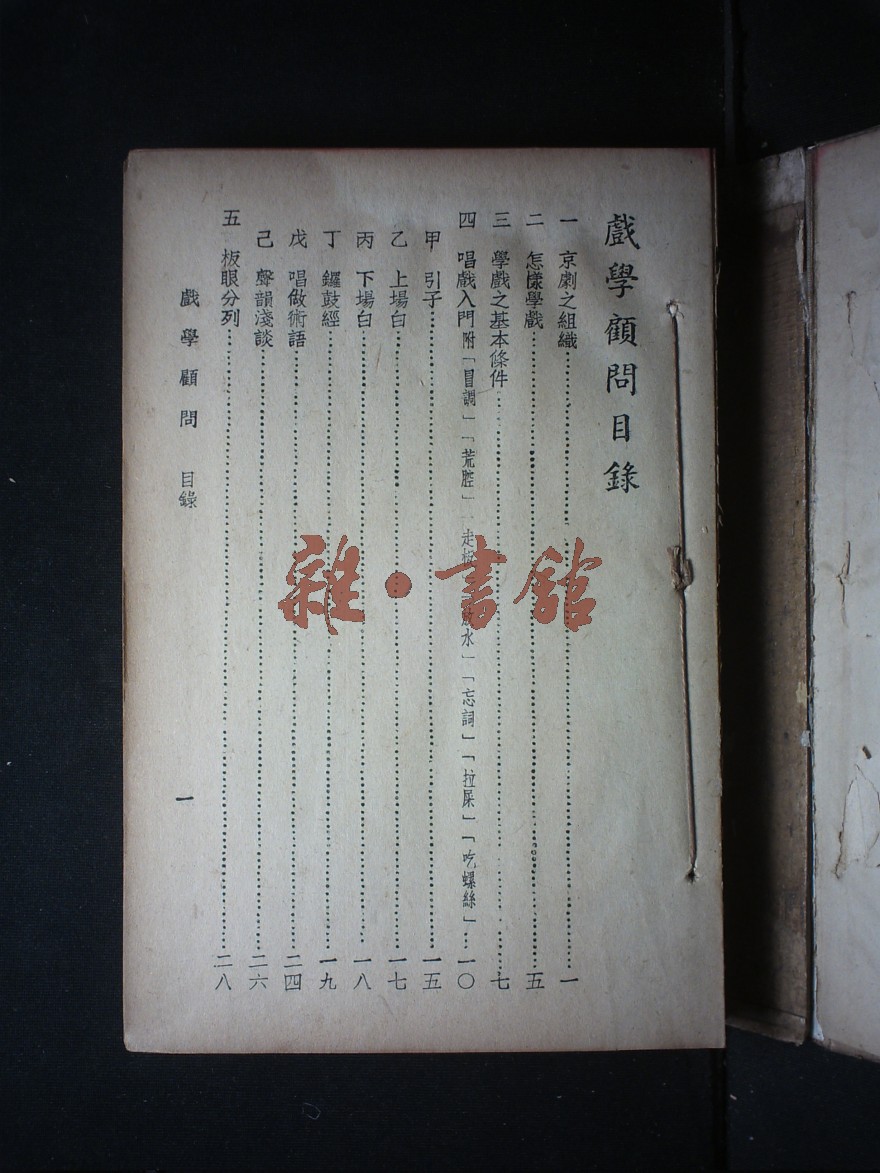 戲學顧問目錄
一 京劇之組織……一
二 怎樣學戲……五
三 學戲之基本條件……七
四 唱戲入門附「冒調」「荒腔」「走板水」「忘詞」「拉屎」「吃螺絲」……一〇
甲 引子……一五
乙 上場白……一七
丙 下場白……一八
丁 鑼鼓經……一九
戊 唱做術語……二四
己 聲韻淺談……二六
五 板眼分列……二八
戲學顧問 目錄
一
雜·書館